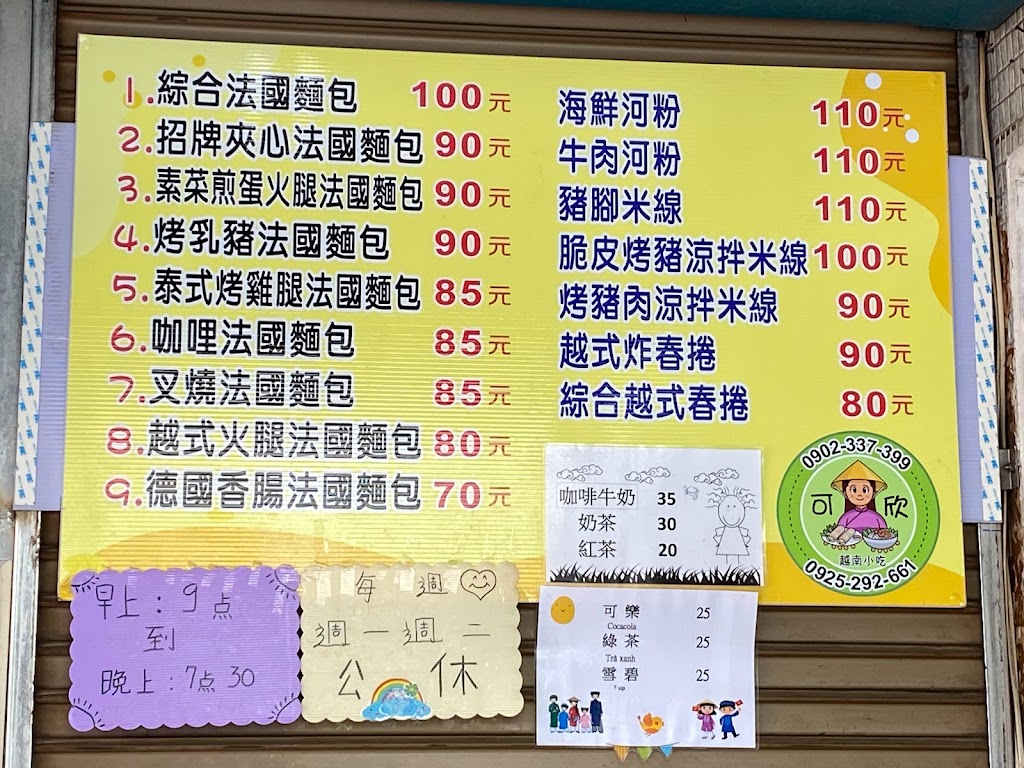 1.綜合法國麵包 100元
2.招牌夾心法國麵包 90元
3.素菜煎蛋火腿法國麵包 90元
4.烤乳豬法國麵包 90元
5.泰式烤雞腿法國麵包 85元
6.咖哩法國麵包 85元
7.叉燒法國麵包 85元
8.越式火腿法國麵包 80元
9.德國香腸法國麵包 70元
海鮮河粉 110元
牛肉河粉 110元
豬腳米線 110元
脆皮烤豬涼拌米線 100元
烤豬肉涼拌米線 90元
越式炸春捲 90元
綜合越式春捲 80元
咖啡牛奶 35
奶茶 30
紅茶 20
0902-337-399
可欣
越南小吃
0925-292-661
早上:9点
到
晚上:7点30
每週
週一週二
公休
可樂 25
Cocacola
綠茶 25
Trà xanh
雪碧 25
7 up